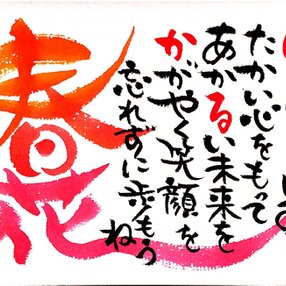 たかい心をもって
あかるい未来を
かがやく笑顔を
忘れずに歩もう
ね
春花